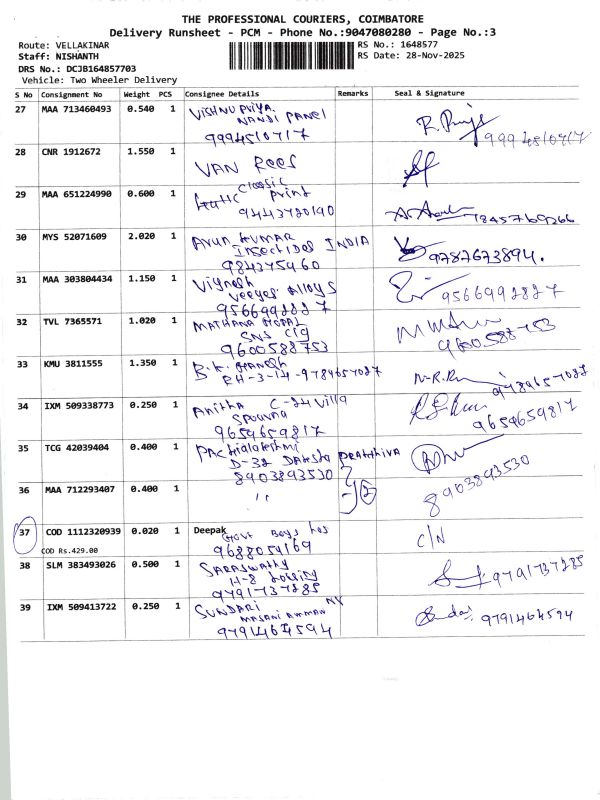 THE PROFESSIONAL COURIERS, COIMBATORE
Delivery Runsheet - PCM - Phone No.:9047080280 - Page No.:3
Route: VELLAKINAR RS No.: 1648577
Staff: NISHANTH RS Date: 28-Nov-2025
DRS No.: DCJB164857703
Vehicle: Two Wheeler Delivery
S No Consignment No Weight PCS Consignee Details Remarks Seal & Signature
27 MAA 713460493 0.540 1 Vishnu Priya
NANDI PANEL
9994510717
28 CNR 1912672 1.550 1
VAN Rees
29 MAA 651224990 0.600 1 Classic
Print
9443780190
30 MYS 52071609 2.020 1 Arun KUMAR
Insectides INDIA
984375460 9787673894.
31 MAA 303804434 1.150 1 Vignesh
Veeyes Alloys
9566992887 9566992887
32 TVL 7365571 1.020 1 MATHANA GOPAL
SNS Clg
9600588753 9600588753
33 KMU 3811555 1.350 1 B.K. GANESH
BH-3-14 -9789657087 9789657087
34 IXM 509338773 0.250 1 Anitha C-24 Villa
9659659817 9659659817
35 TCG 42039404 0.400 1
D-32 Daksha PRATHIVA
8903893530 8903893530
36 MAA 712293407 0.400 1 ,, 2
37 COD 1112320939 0.020 1 Deepak
Govt Boys hos C/N
COD Rs.429.00 9688054169
38 SLM 383493026 0.500 1 SARASWATHY
H-8
9791737285 9791737285
39 IXM 509413722 0.250 1 SUNDARI
MASANI AMMAN
9791464594 9791464594